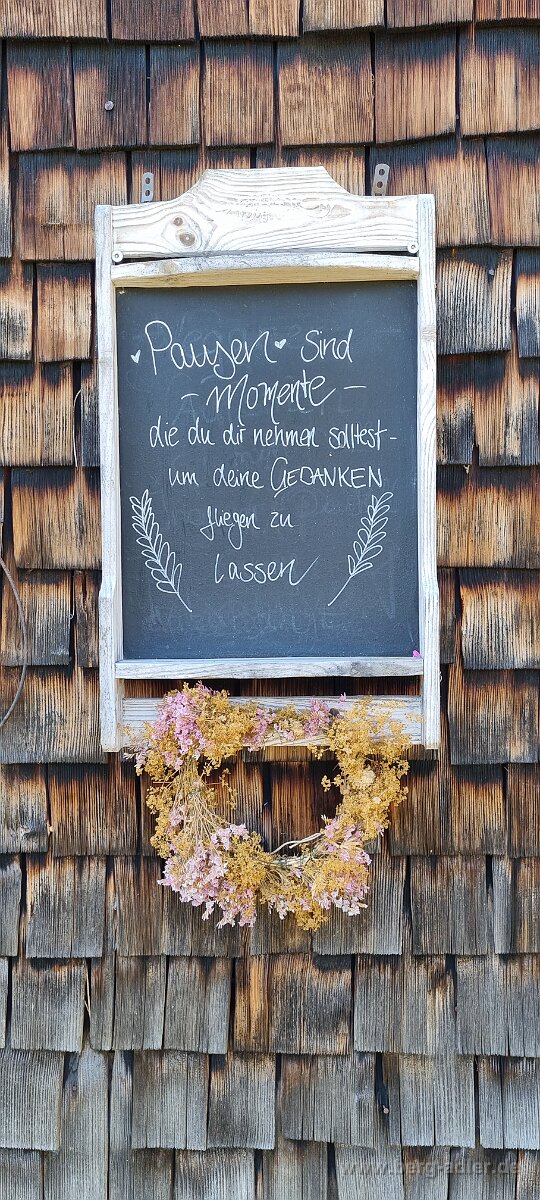 Pausen sind
- Momente -
die du dir nehmen solltest -
um deine GEDANKEN
fliegen zu
lassen
www.berg-adler.de